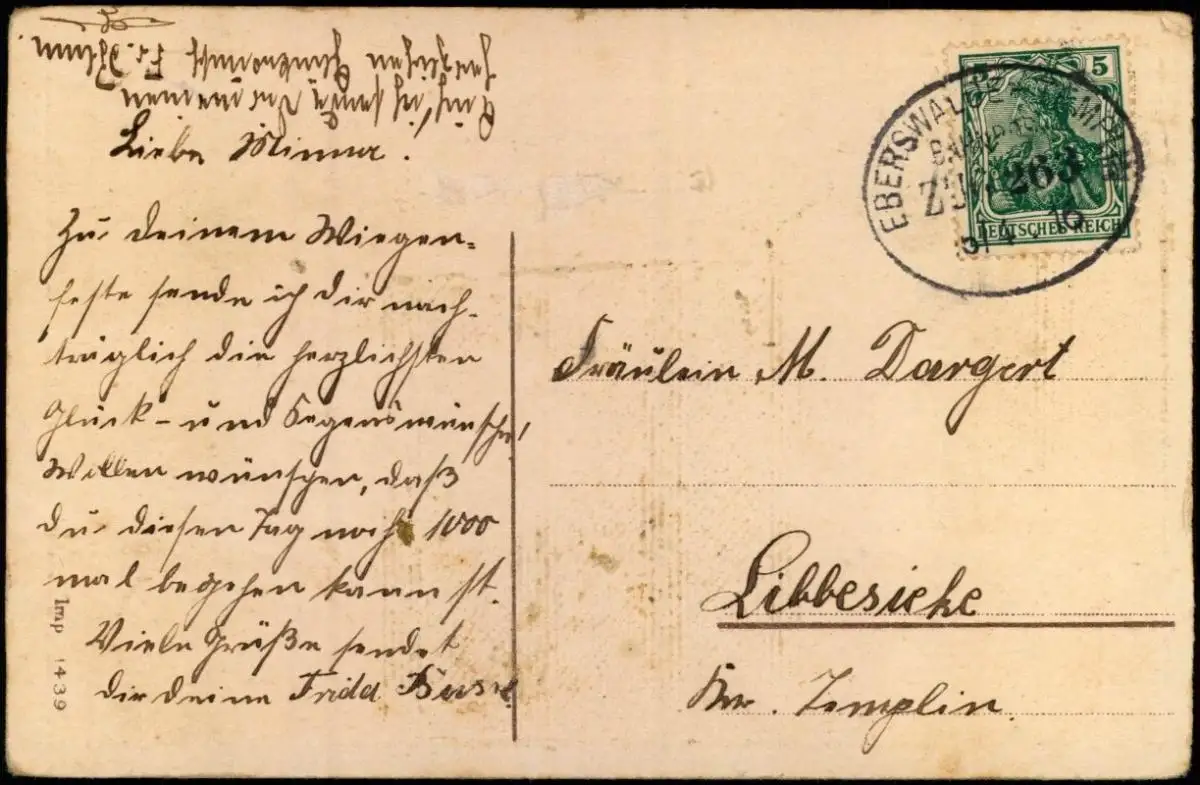 Liebe Minna!
Zu deinem Wiegen-
feste sende ich dir nach-
träglich die herzlichsten
Glück- und Segenswünsche!
Wollen wünschen, daß
du diesen Tag noch 1000
mal begehen kannst.
Viele Grüße sendet
dir deine Frida Busse.
Auch ich sende Dir meinen
herzlichen Glückwunsch Fr.
Imp 1439
5
EBERSWALDE
BAHNPOST
263
DEUTSCHES REICH
Fräulein M. Dargert
Libbesicke
Kr. Templin.